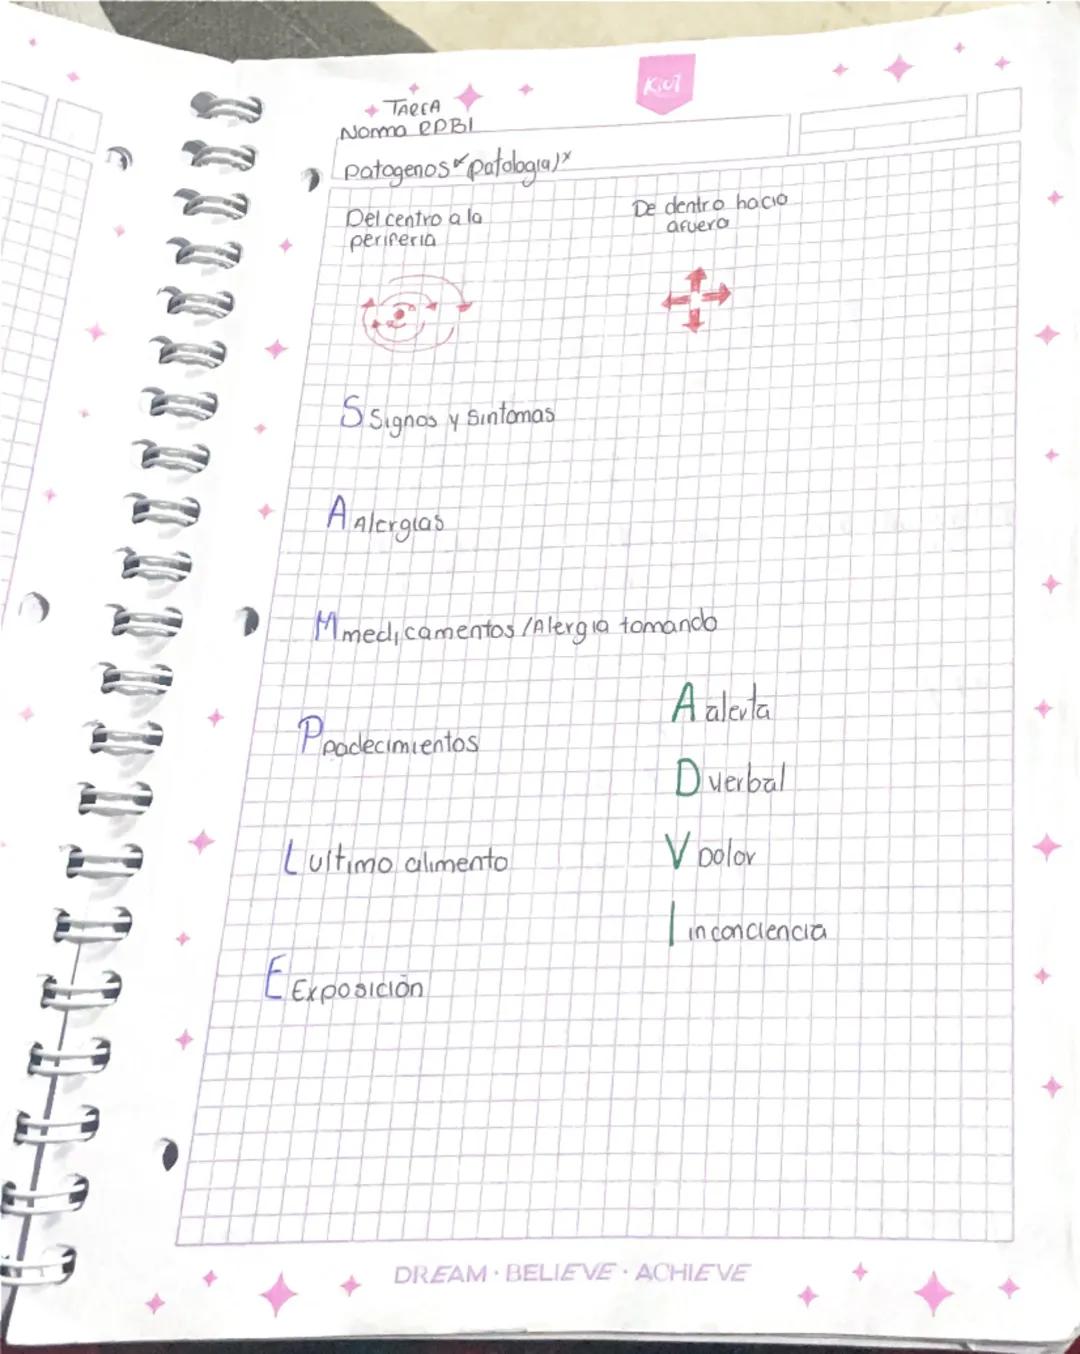 TAREA
Norma RPBI
Kiut
patogenos ✓ patologia) x
Del centro a la
periferia
De dentro hacia
afuera
S Signos y Sintomas
A Alergias
M medicamentos / Alergia tomando
P padecimientos
L ultimo alimento
E Exposición
A alerta
D verbal
V Dolor
I inconciencia
DREAM · BELIEVE · ACHIEVE